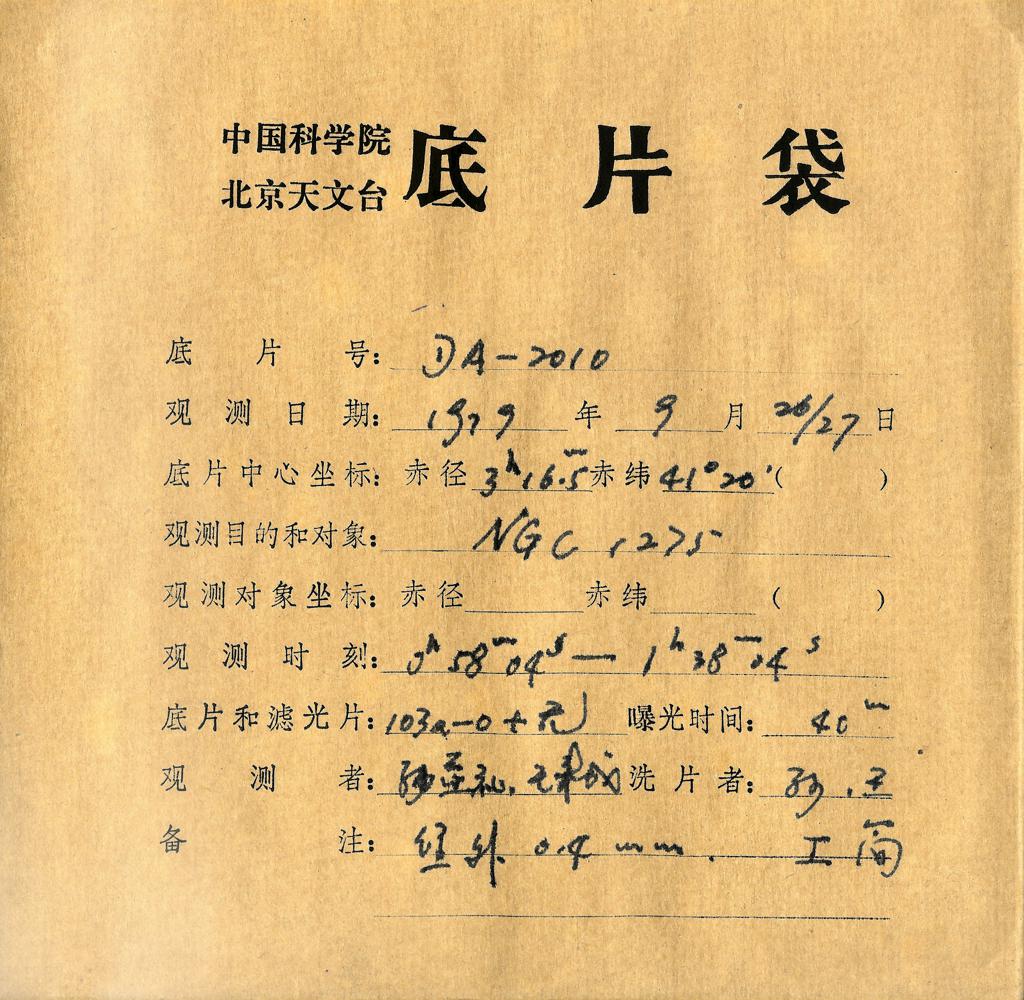 中国科学院
北京天文台
底片袋
底片号: DA-2010
观测日期: 1979年9月26/27日
底片中心坐标: 赤径 3ʰ16.5ᵐ 赤纬 41°20′( )
观测目的和对象: NGC 1275
观测对象坐标: 赤径 赤纬 ( )
观测时刻: 0ʰ58ᵐ04ˢ — 1ʰ38ᵐ04ˢ
底片和滤光片: 103a-O+无 曝光时间: 40ᵐ
观测者: 洗片者: 孙、王
备注: 0.4 mm.